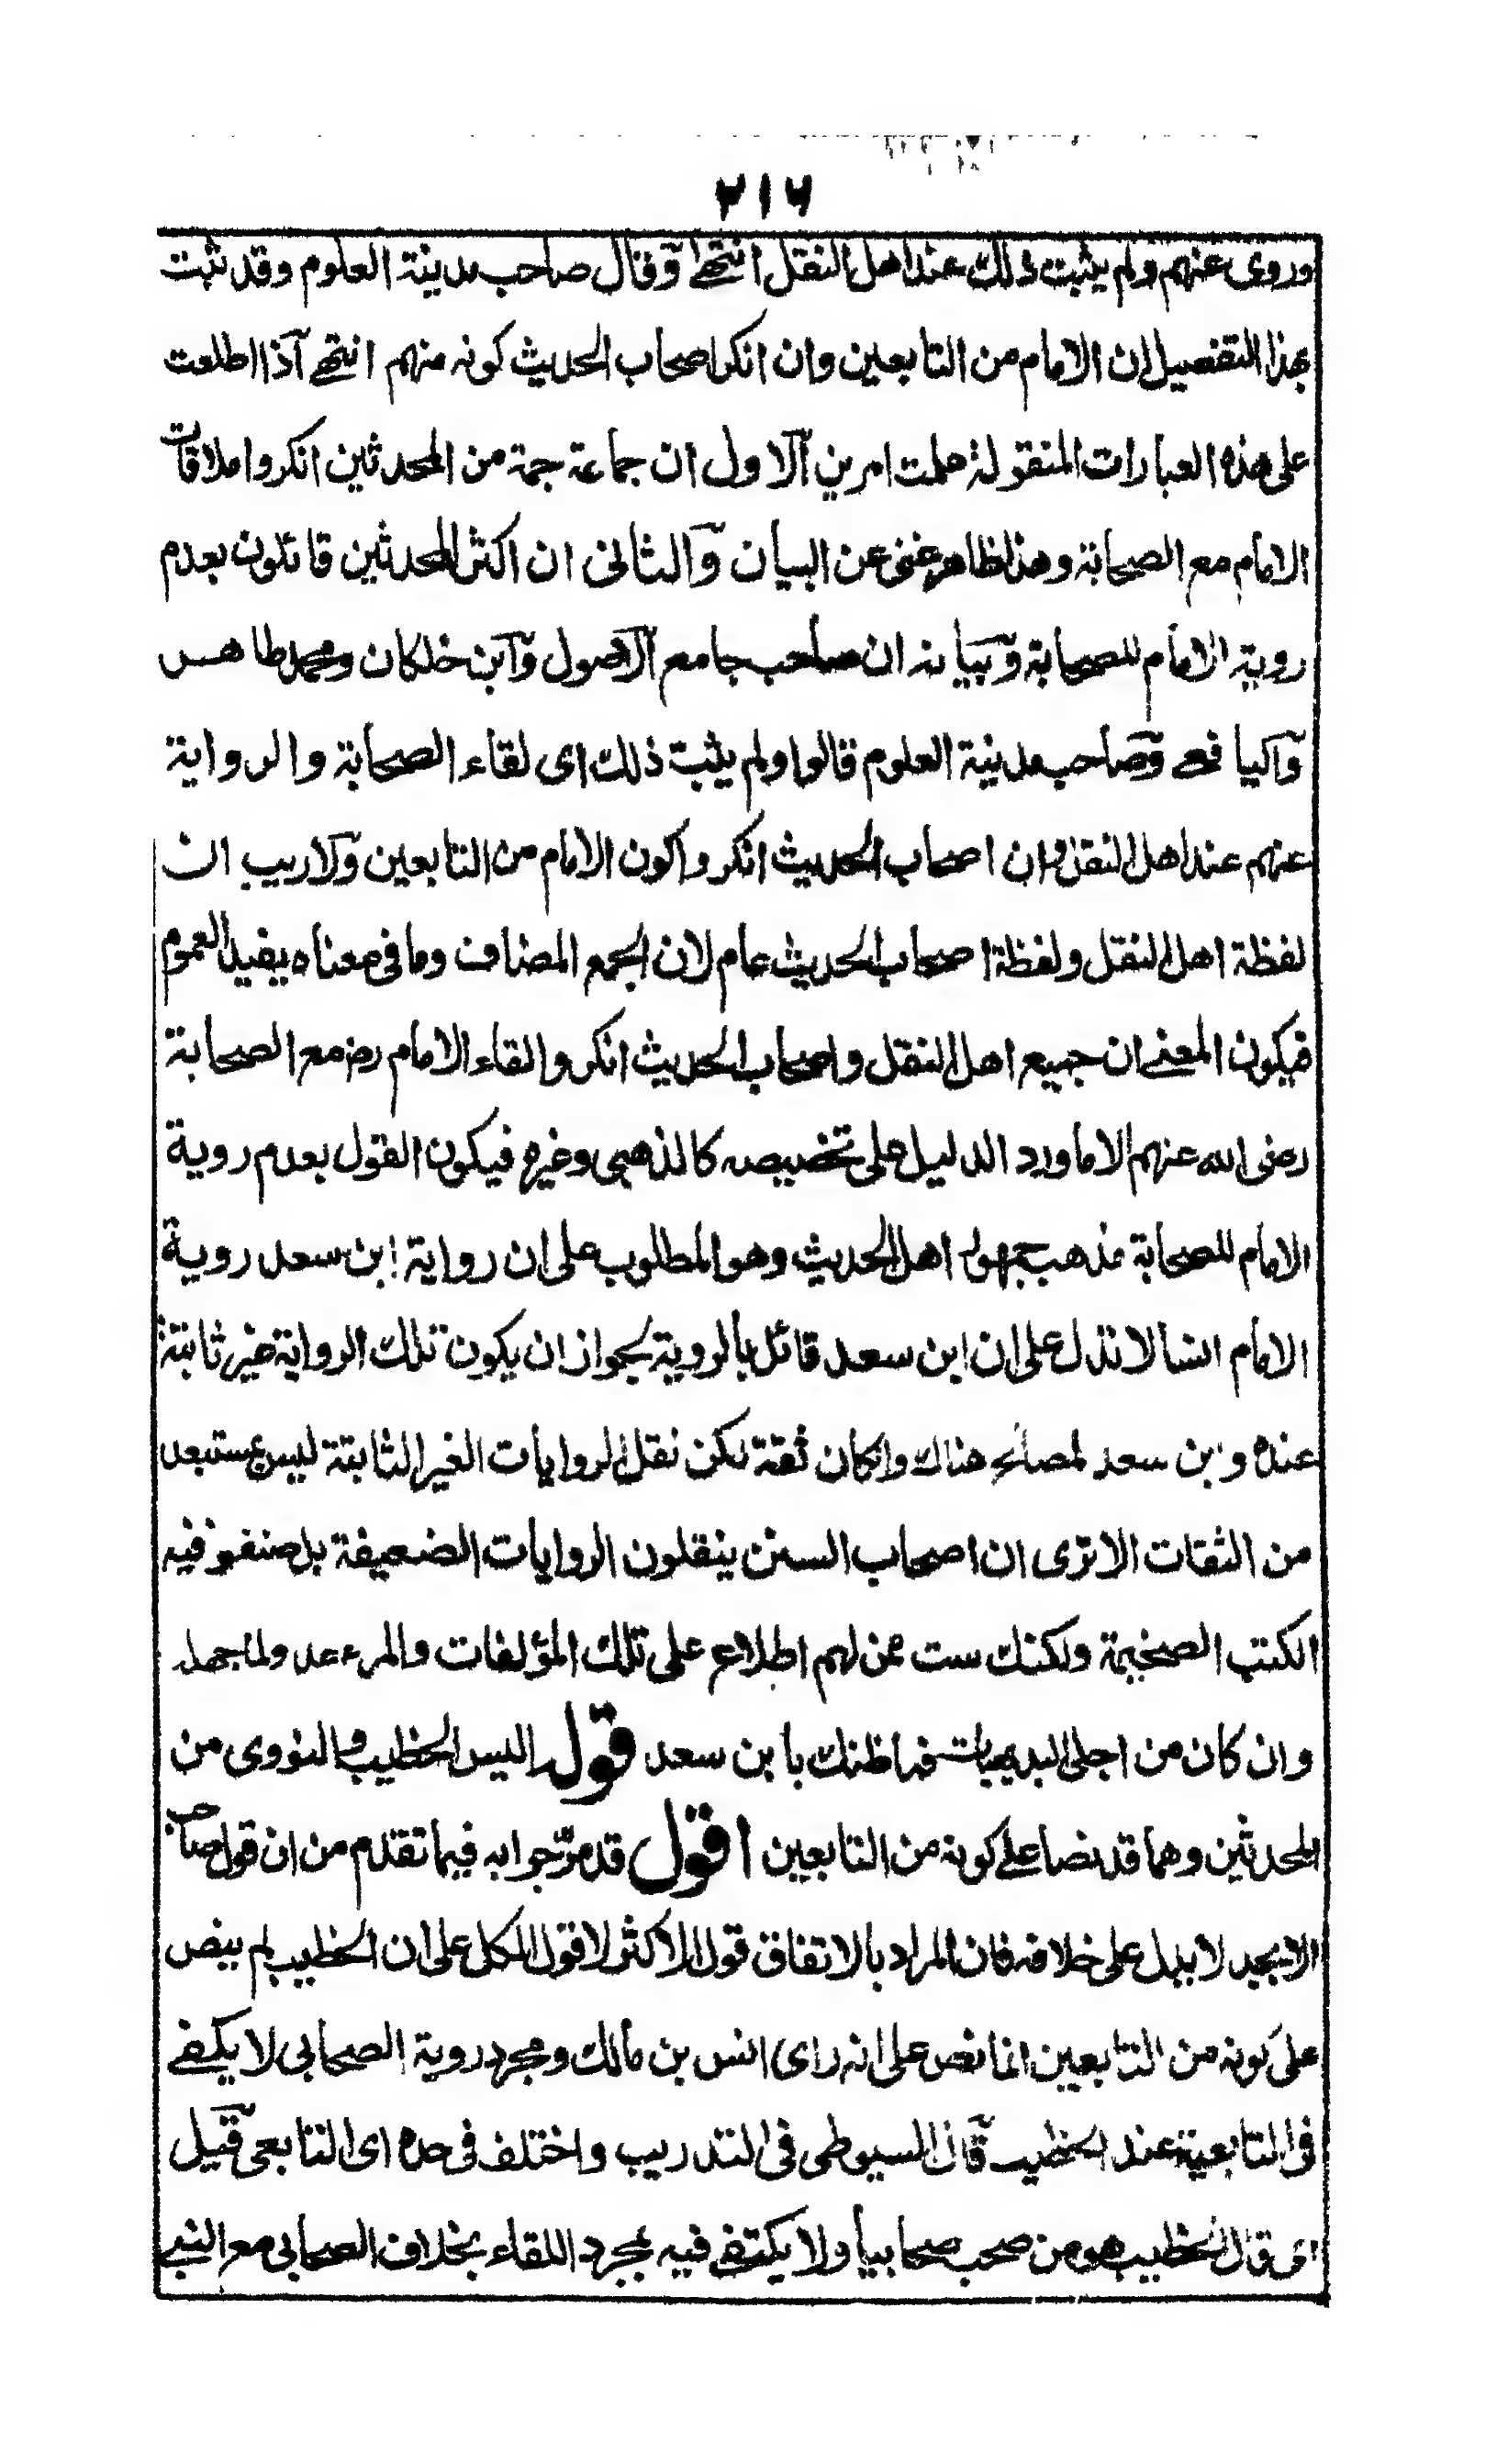 ٢١٦
وروى عنهم ولم يثبت ذلك عند اهل النقل انتهى وقال صاحب مدينة العلوم وقد ثبت
بهذا التفصيل ان الامام من التابعين وان انكر اصحاب الحديث كونه منهم انتهى اذا اطلعت
على هذه العبارات المنقولة علمت امرين الاول ان جماعة جمة من المحدثين انكروا ملاقات
الامام مع الصحابة وهذا ظاهر غنى عن البيان والثانى ان اكثر المحدثين قائلون بعدم
روية الامام للصحابة وبيانه ان صاحب جامع الاصول وابن خلكان ومحمد طاهر
واليافعى وصاحب مدينة العلوم قالوا ولم يثبت ذلك اى لقاء الصحابة والرواية
عنهم عند اهل النقل وان اصحاب الحديث انكروا كون الامام من التابعين ولا ريب ان
لفظة اهل النقل ولفظة اصحاب الحديث عام لان الجمع المضاف وما فى معناه يفيد العموم
فيكون المعنى ان جميع اهل النقل واصحاب الحديث انكروا لقاء الامام رض مع الصحابة
رضى الله عنهم الا ما ورد الدليل على تخصيصه كالذهبى وغيره فيكون القول بعدم روية
الامام للصحابة مذهب جمهور اهل الحديث وهو المطلوب على ان رواية ابن سعد روية
الامام انسا لا تدل على ان ابن سعد قائل بالروية لجواز ان يكون تلك الرواية غير ثابتة
عنده وابن سعد لمصالح هناك وان كان ثقة لكن نقل الروايات الغير الثابتة ليس بمستبعد
من الثقات الا ترى ان اصحاب السنن ينقلون الروايات الضعيفة بل صنفوا فيه
الكتب الضخيمة ولكنك لست ممن لهم اطلاع على تلك المؤلفات والمرء عدو لما جهله
وان كان من اجلى البديهيات فما ظنك بابن سعد قوله اليس الخطيب والنووى من
المحدثين وهما قد نصا على كونه من التابعين اقول قد مر جوابه فيما تقدم من ان قول صاحب
الابجد لا يدل على خلافه فان المراد بالاتفاق قول الاكثر لا قول الكل على ان الخطيب لم ينص
على كونه من التابعين انما نص على انه راى انس بن مالك ومجرد روية الصحابى لا يكفى
فى التابعية عند الخطيب قال السيوطى فى التدريب واختلف فى حده اى التابعى قيل
اى قال الخطيب هو من صحب صحابيا ولا يكتفى فيه بمجرد اللقاء بخلاف الصحابى مع النبى